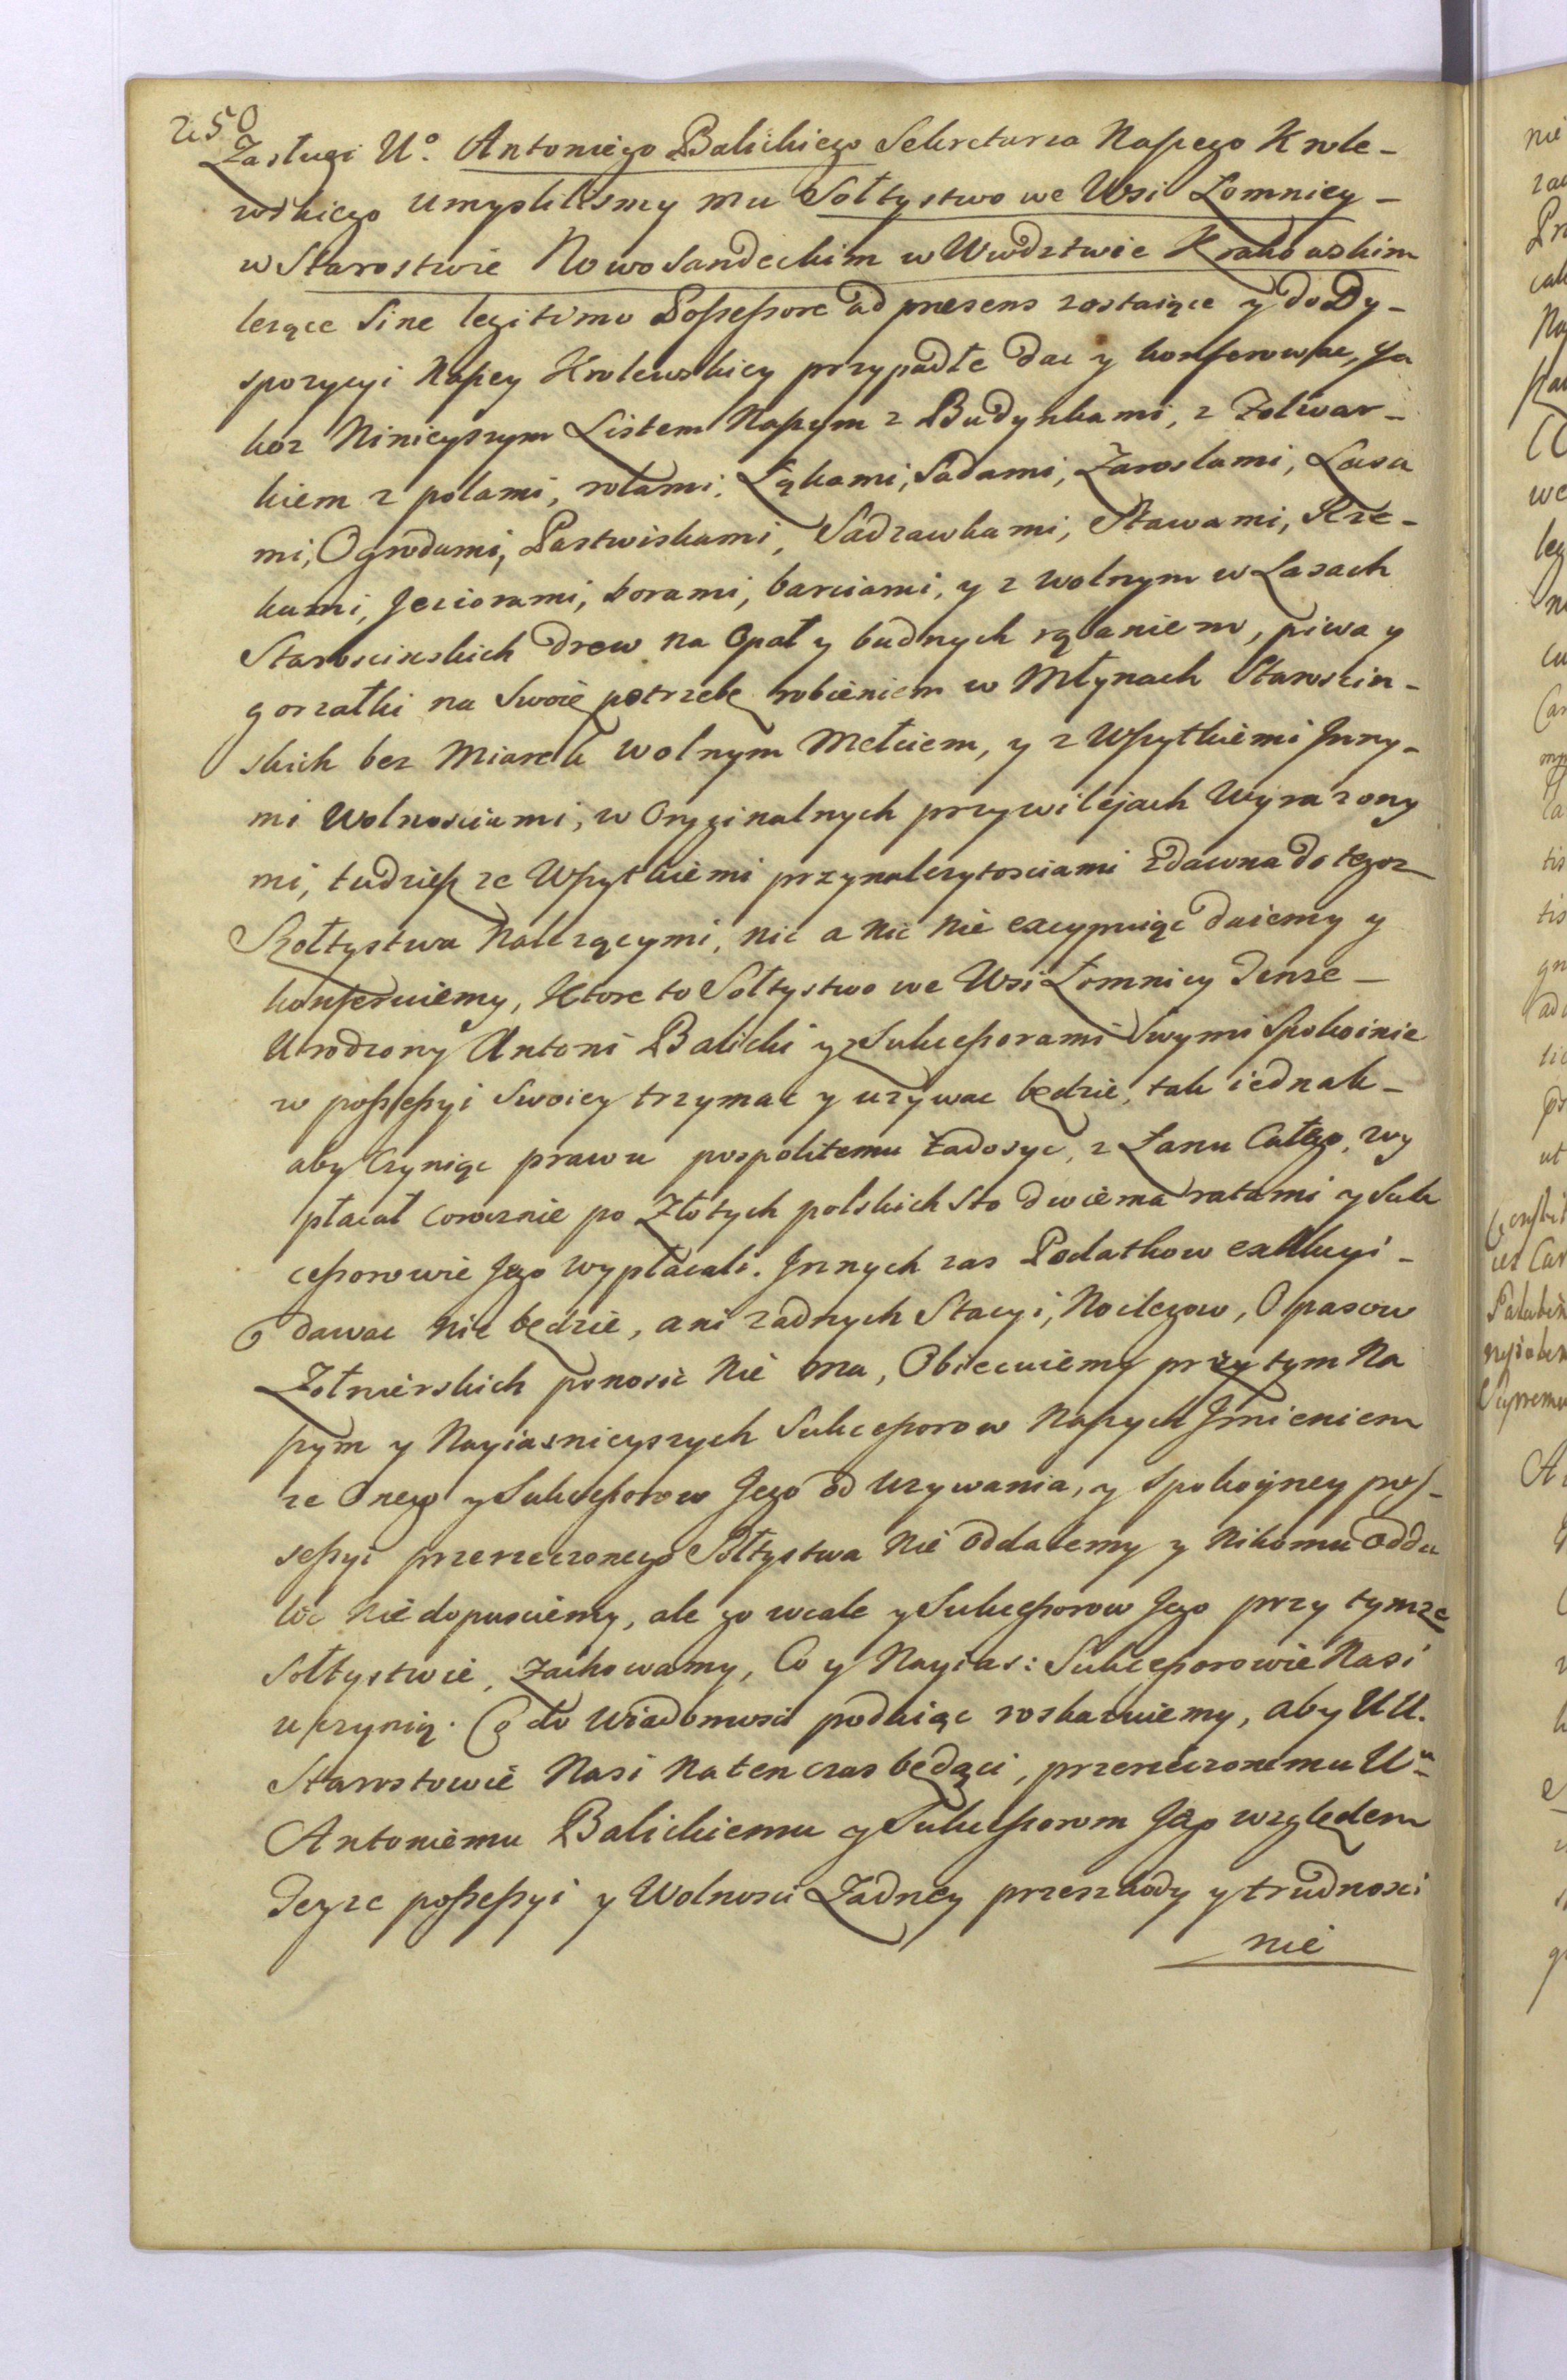 250
Zasługi U°. Antoniego Balickiego Sekretarza Naszego Krole-
wskiego umyslilismy mu Sołtystwo we Wsi Łomnicy -
w Starostwie Nowo Sandeckim w Wwdztwie Krakowskim
leżące Sine legitimo Possessore ad presens zostaiące y do Dy-
spozycyi Naszey Krolewskiey przypadłe dac y konferowac, Ja
koż Ninieyszym Listem Naszym z Budynkami, z Folwar-
kiem z polami, rolami, Łąkami, Sadami, Zaroslami, Lasa
mi, Ogrodami, Pastwiskami, Sadzawkami, Stawami, Rze-
kami, Jeziorami, borami, barciami, y z wolnym w Lasach
Staroscinskich drew na Opał y budnych rąbaniem, piwa y
gorzałki na Swoię potrzebę robieniem w Młynach Staroscin-
skich bez Miarek wolnym Mełciem, y z Wszytkiemi Inny-
mi Wolnosciami, w Oryginalnych przywilejach Wyrazony
mi, tudziesz ze Wszytkiemi przynalezytosciami zdawna do tegoz
Szołtystwa Nalezącymi, nic a nic nie excypuiąc daiemy y
konferuiemy, Ktore to Sołtystwo we Wsi Łomnicy Tenze -
Urodzony Antoni Balicki y z Sukcessorami Swymi Spokoinie
w possessyi Swoiey trzymac y uzywac będzie, tak iednak -
aby Czyniąc prawu pospolitemu Zadosyc, z Łanu Całego, wy
płacał corocznie po Złotych polskich Sto dwiema ratami y Suk
cessorowie Jego wypłacali. Innych zas Podatkow exakcyi -
dawac nie będzie, ani zadnych Stacyi, Noclegow, Opasow
Żołnierskich ponosic Nie ma, Obiecuiemy przy tym Na
szym y Nayiasnieyszych Sukcessorow Naszych Imieniem
ze Onego y Sukcessorow Jego od Uzywania, y Spokoyney pos-
sessyi przerzeczonego Sołtystwa Nie oddalemy y Nikomu odda
lic Nie dopusciemy, ale go wcale y Sukcessorow Jego przy tymze
Sołtystwie, Zachowamy, Co y Nayias: Sukcessorowie Nasi
uczynią. Co do Wiadomosci podaiąc roskazuiemy, aby UU.
Starostowie Nasi Na ten czas będący, przerzeczonemu Uu
Antoniemu Balickiemu y Sukcessorom Jego względem
Teyze possessyi y Wolnosci Żadney przeszkody y trudnosci
nie